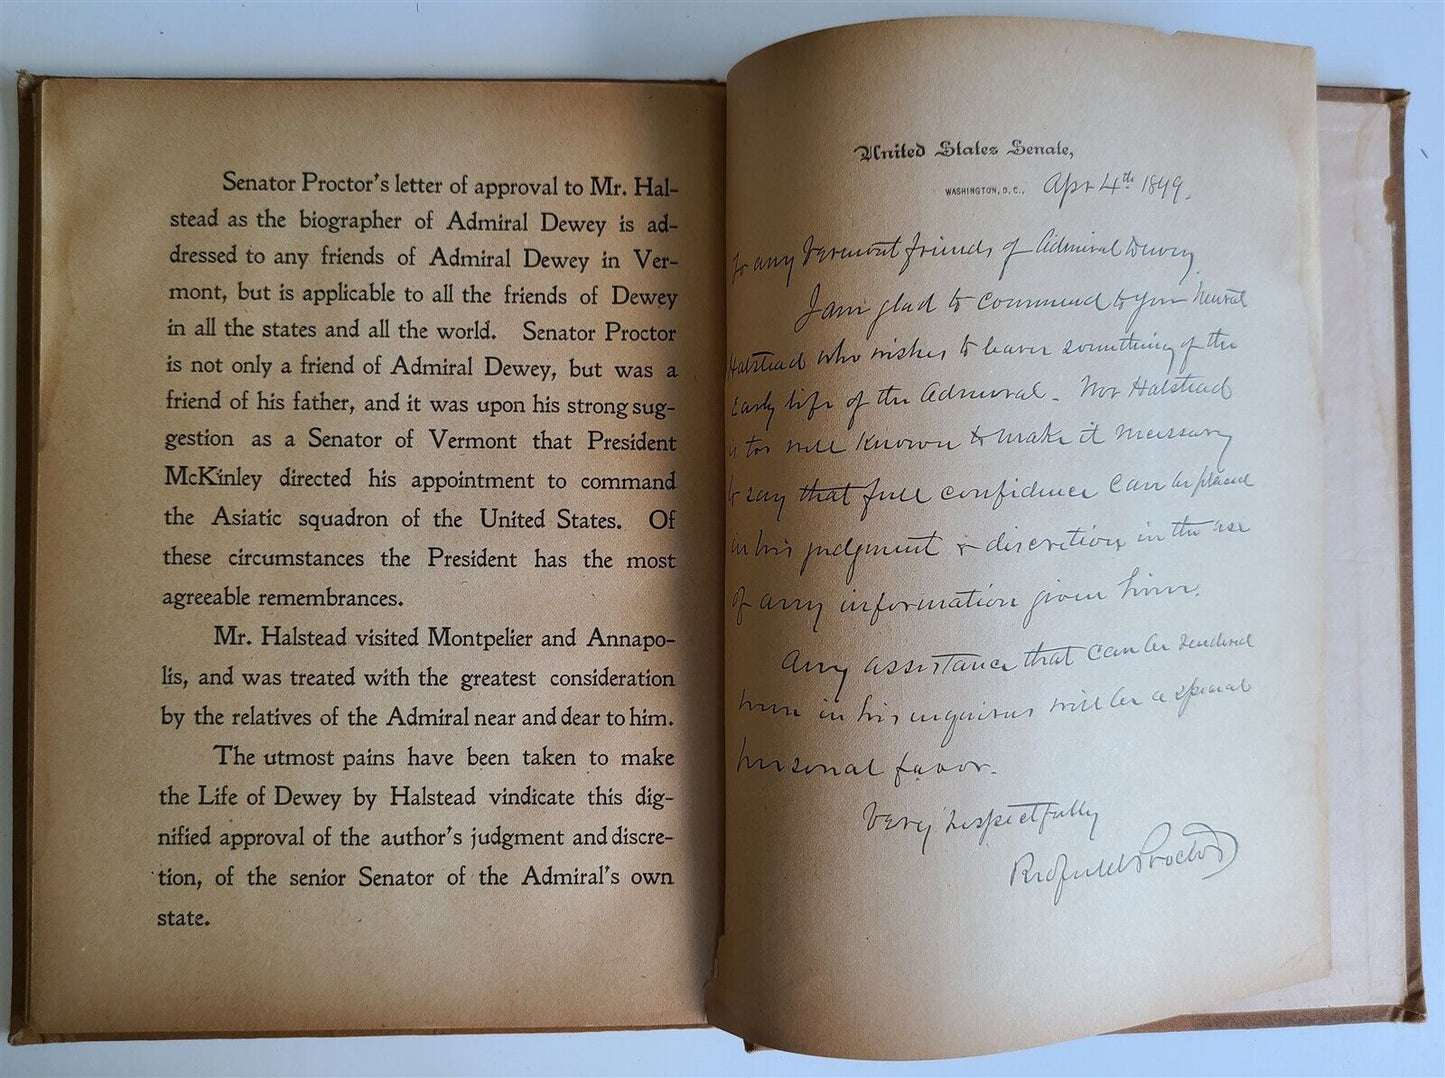 Senator Proctor's letter of approval to Mr. Hal-
stead as the biographer of Admiral Dewey is ad-
dressed to any friends of Admiral Dewey in Ver-
mont, but is applicable to all the friends of Dewey
in all the states and all the world. Senator Proctor
is not only a friend of Admiral Dewey, but was a
friend of his father, and it was upon his strong sug-
gestion as a Senator of Vermont that President
McKinley directed his appointment to command
the Asiatic squadron of the United States. Of
these circumstances the President has the most
agreeable remembrances.
Mr. Halstead visited Montpelier and Annapo-
lis, and was treated with the greatest consideration
by the relatives of the Admiral near and dear to him.
The utmost pains have been taken to make
the Life of Dewey by Halstead vindicate this dig-
nified approval of the author's judgment and discre-
tion, of the senior Senator of the Admiral's own
state.
United States Senate,
WASHINGTON, D. C., Apr 4th 1899.
To any Vermont friends of Admiral Dewey.
I am glad to commend to you Murat
Halstead who wishes to learn something of the
early life of the Admiral. Mr Halstead
is too well known to make it necessary
to say that full confidence can be placed
in his judgment & discretion in the use
of any information given him.
Any assistance that can be rendered
him in his inquiries will be a special
personal favor.
Very respectfully
Redfield Proctor